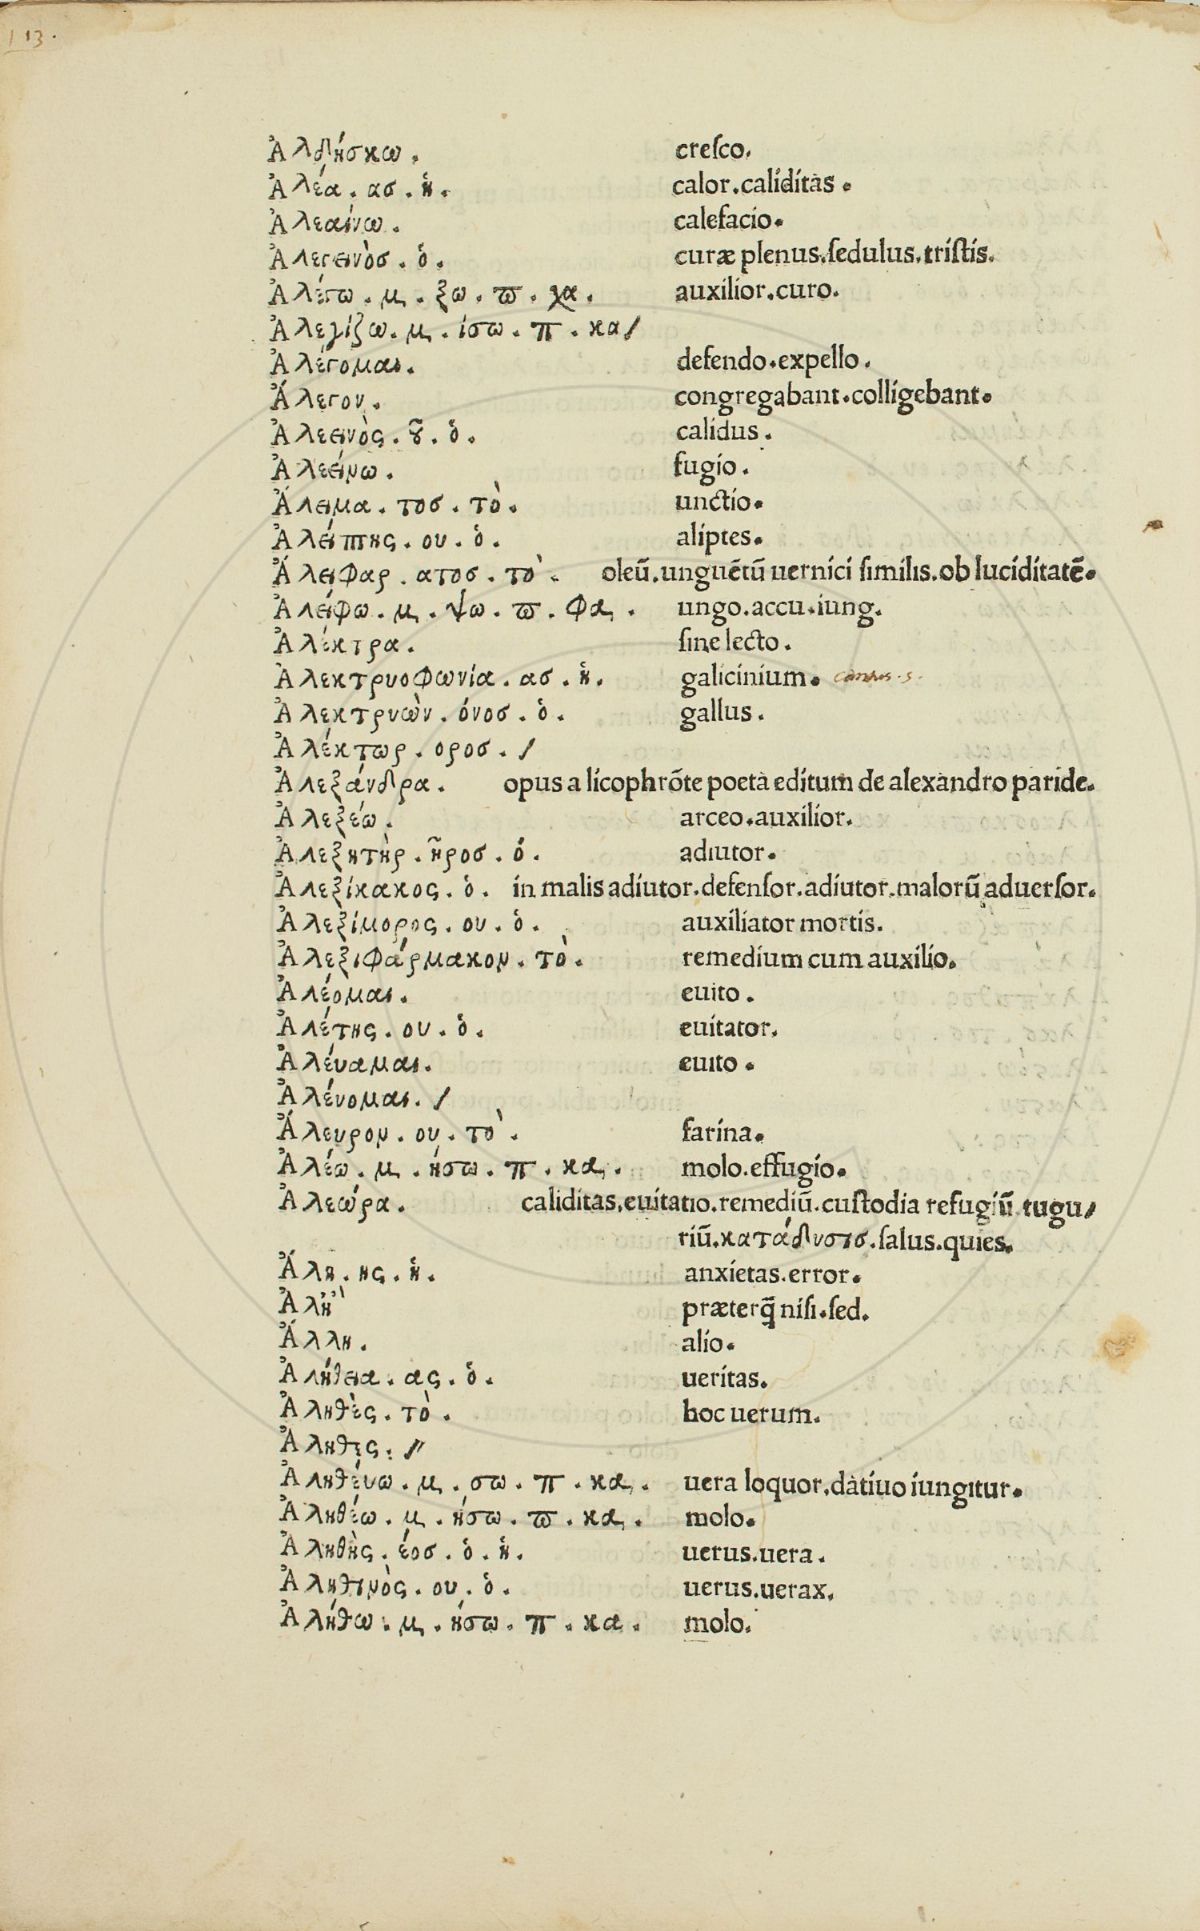 113.
Ἀλδήσκω. cresco.
Ἀλέα. ασ. ἡ. calor. caliditas.
Ἀλεαίνω. calefacio.
Ἀλεγεινὸσ. ὁ. curæ plenus. sedulus. tristis.
Ἀλέγω. μ. ξω. π. χα. auxilior. curo.
Ἀλεγίζω. μ. ίσω. π. κα/
Ἀλέγομαι. defendo. expello.
Ἄλεγον. congregabant. colligebant.
Ἀλεεινὸς. οῦ. ὁ. calidus.
Ἀλεείνω. fugio.
Ἄλειμα. τοσ. τὸ. unctio.
Ἀλείπτης. ου. ὁ. aliptes.
Ἄλειφαρ. ατοσ. τὸ. oleū. unguētū uernici similis. ob luciditatē.
Ἀλείφω. μ. ψω. π. φα. ungo. accu. iung.
Ἀλέκτρα. sine lecto.
Ἀλεκτρυοφωνία. ασ. ἡ. galicinium.
Ἀλεκτρυὼν. όνοσ. ὁ. gallus.
Ἀλέκτωρ. οροσ. /
Ἀλεξάνδρα. opus a licophrōte poeta editum de alexandro paride.
Ἀλεξέω. arceo. auxilior.
Ἀλεξητὴρ. ῆροσ. ὁ. adiutor.
Ἀλεξίκακος. ὁ. in malis adiutor. defensor. adiutor. malorū aduersor.
Ἀλεξίμορος. ου. ὁ. auxiliator mortis.
Ἀλεξιφάρμακον. τὸ. remedium cum auxilio.
Ἀλέομαι. euito.
Ἀλέτης. ου. ὁ. euitator.
Ἀλέυαμαι. euito.
Ἀλέυομαι. /
Ἄλευρον. ου. τὸ. farina.
Ἀλέω. μ. ήσω. π. κα. molo. effugio.
Ἀλεώρα. caliditas. euitatio. remediū. custodia refugiū tugu/
riū. κατάδυσισ. salus. quies.
Ἄλη. ης. ἡ. anxietas. error.
Ἀλἢ præterq̄ nisi. sed.
Ἄλλη. alio.
Ἀλήθεια. ας. ὁ. ueritas.
Ἀληθὲς. τὸ. hoc uerum.
Ἄληθες. //
Ἀληθέυω. μ. σω. π. κα. uera loquor. datiuo iungitur.
Ἀληθέω. μ. ήσω. π. κα. molo.
Ἀληθὴς. έοσ. ὁ. ἡ. uerus. uera.
Ἀληθινὸς. ου. ὁ. uerus. uerax.
Ἀλήθω. μ. ήσω. π. κα. molo.